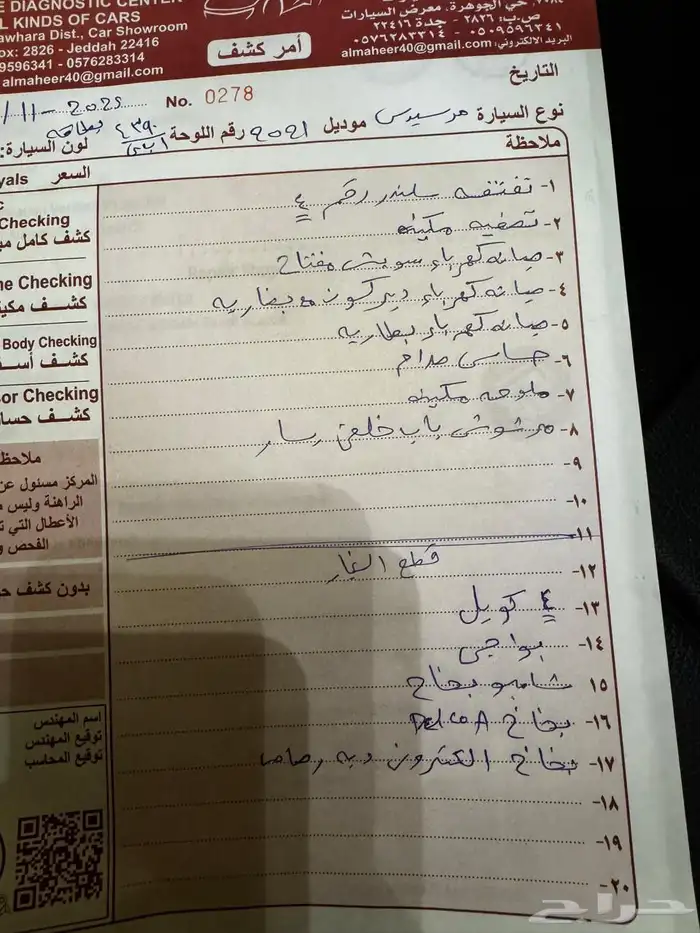 DIAGNOSTIC CENTER
L KINDS OF CARS
awhara Dist., Car Showroom
ox: 2826 - Jeddah 22416
9596341 - 0576283314
almaheer40@gmail.com
حي الجوهرة. معرض السيارات
ص.ب: ٢٨٢٦ - جدة ٢٢٤١٦
٠٥٠٩٥٩٦٣٤١ - ٠٥٧٦٢٨٣٣١٤
البريد الالكتروني: almaheer40@gmail.com
أمر كشف
التاريخ
/11-2025
No. 0278
نوع السيارة مرسيدس موديل ٢٠٢١ رقم اللوحة ٤٣٩٠ لون السيارة:
ملاحظة
السعر
yals
Checking
كشف كامل
ne Checking
كشف
Body Checking
كشف
or Checking
كشف
ملاحظ
المركز مسئول
الراهنة وليس
الأعطال التي
الفحص
بدون كشف
اسم المهندس
توقيع المهندس
توقيع المحاسب
١- تفتفه سلندر رقم ٤
٢- تصفيه مكينه
٣- صيانه كهرباء سويتش مفتاح
٤- صيانه كهرباء ديركسون مع بخاريه
٥- صيانه كهرباء بطاريه
٦- حساس صدام
٧- ملوحه مكينه
٨- مرشوش باب خلفي يسار
٩-
١٠-
١١-
١٢- قطع الغيار
١٣- ٤ كويل
١٤- بواجي
١٥ شامبو بخاخ
١٦- بخاخ DELCOA
١٧- بخاخ الكترون دبه رصاصا
١٨-
١٩-
٢٠-
حراج